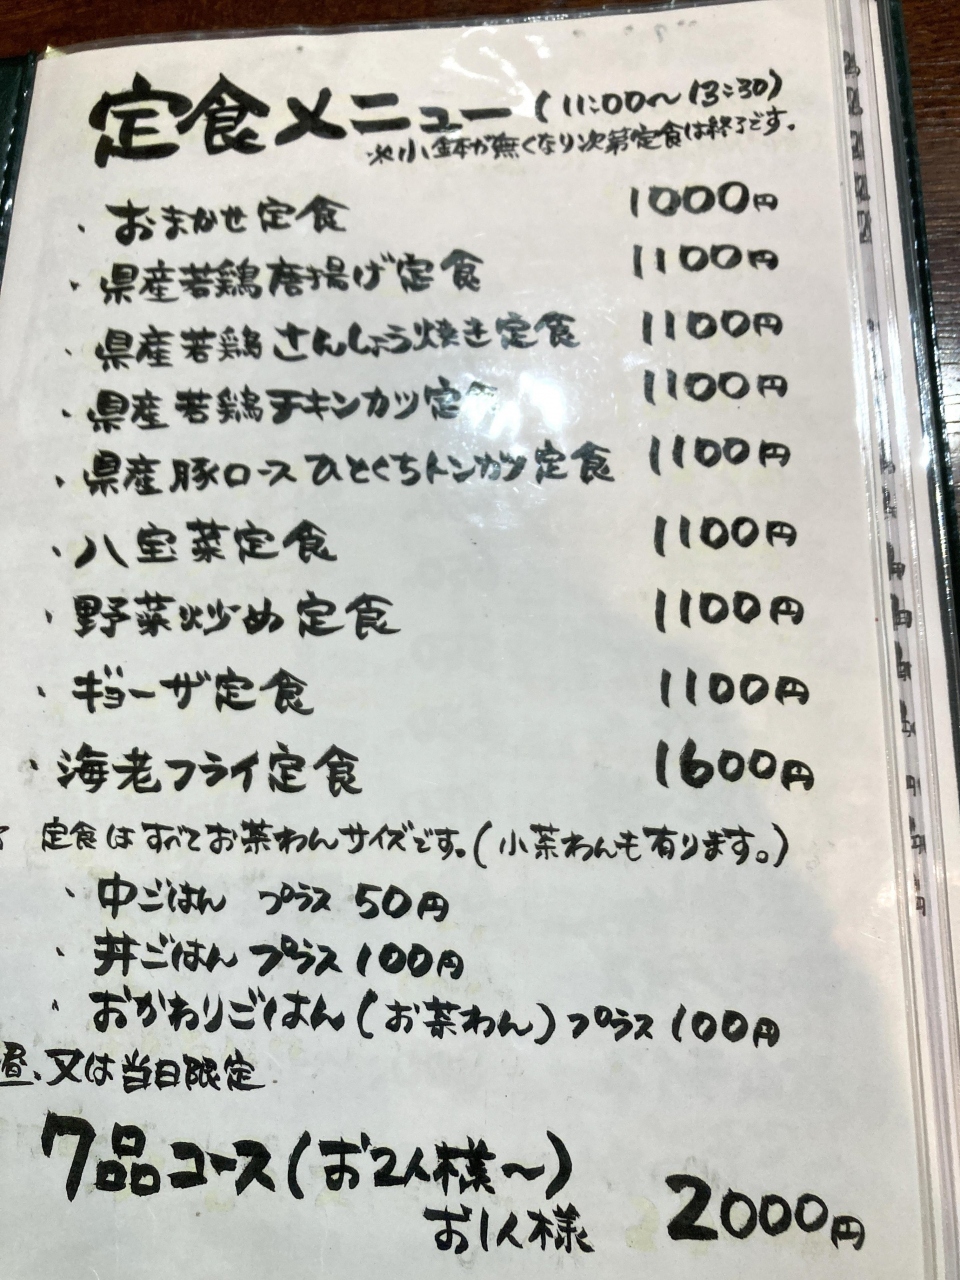 定食メニュー(11:00〜13:30)
※小鉢が無くなり次第定食は終了です。
・おまかせ定食 1000円
・県産若鶏唐揚げ定食 1100円
・県産若鶏さんしょう焼き定食 1100円
・県産若鶏チキンカツ定食 1100円
・県産豚ロースひとくちトンカツ定食 1100円
・八宝菜定食 1100円
・野菜炒め定食 1100円
・ギョーザ定食 1100円
・海老フライ定食 1600円
定食はすべてお茶わんサイズです。(小茶わんも有ります。)
・中ごはん プラス 50円
・丼ごはん プラス 100円
・おかわりごはん(お茶わん)プラス 100円
昼、又は当日限定
7品コース(お2人様〜)
お1人様 2000円